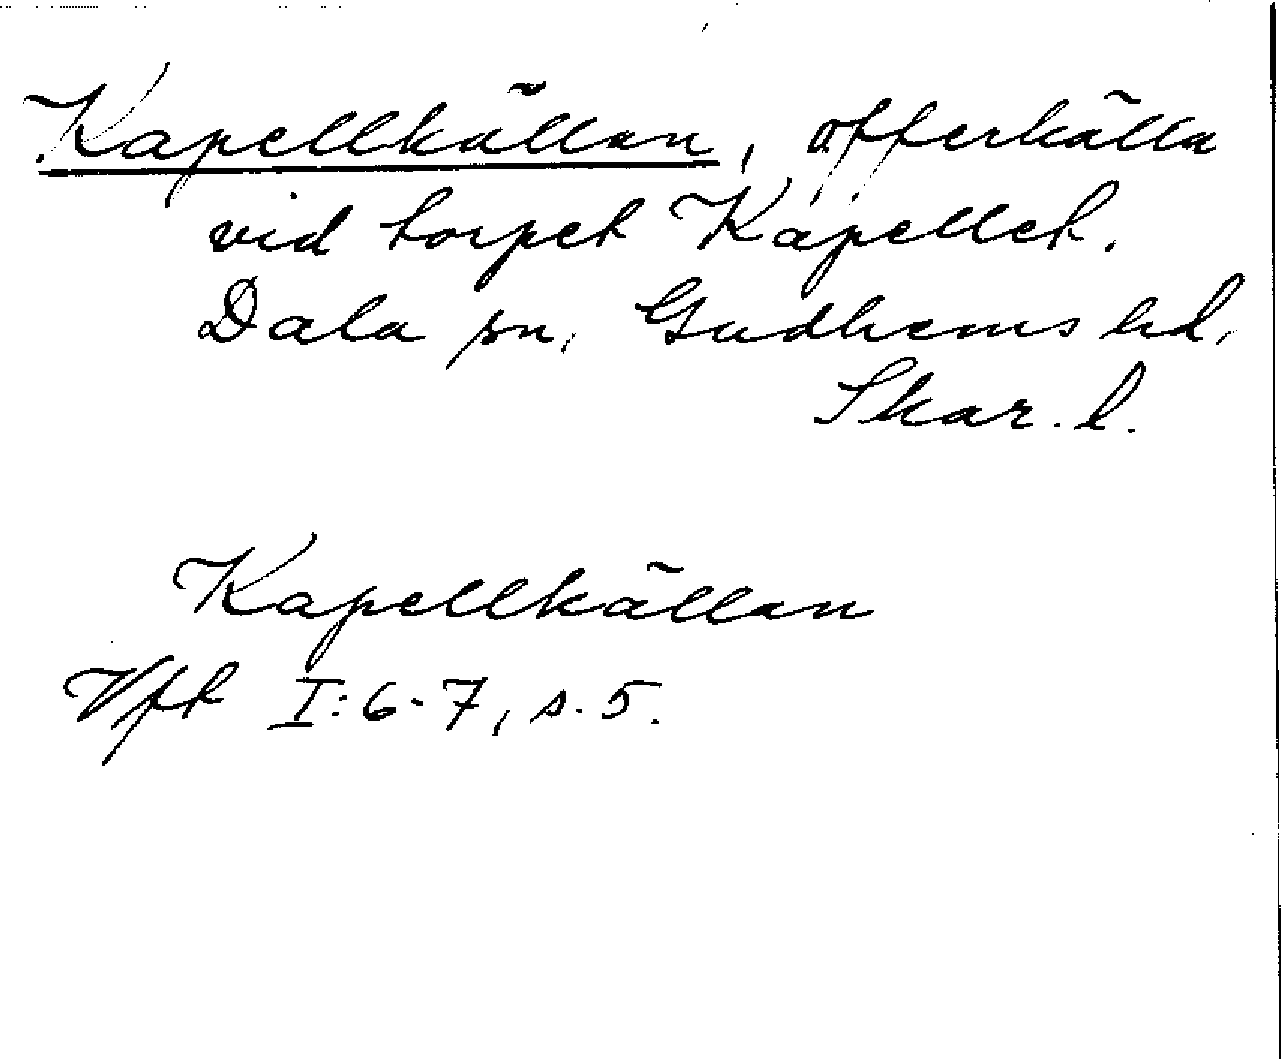 Kapellkällan, offerkälla
vid torpet Kapellet.
Dala sn, Gudhems hd,
Skar. l.
Kapellkällan
Vft I:6-7, s. 5.